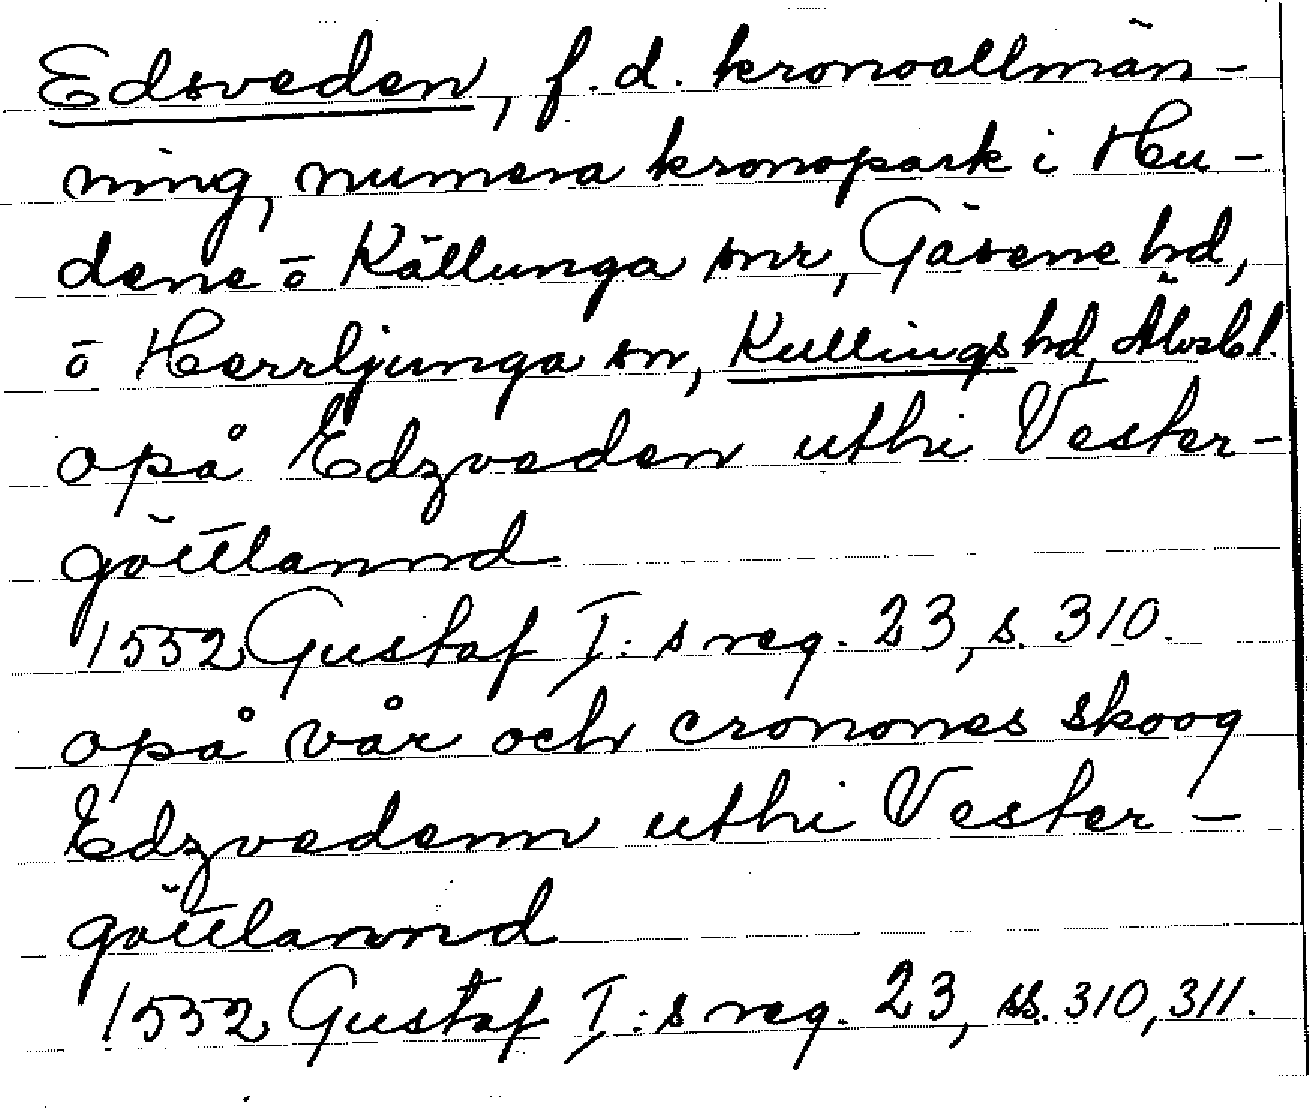 Edsveden, f.d. kronoallmän-
ning, numera kronopark i Hu-
dene o Källunga snr, Gäsene hd,
o Herrljunga sn, Kullings hd, Älvsb l.
opå Edzveden uthi Vester-
göttlannd
1552 Gustaf I:s reg. 23, s. 310.
opå vår och cronones skoog
Edzvedenn uthi Vester-
göttlannd
1552 Gustaf I:s reg. 23, ss. 310, 311.